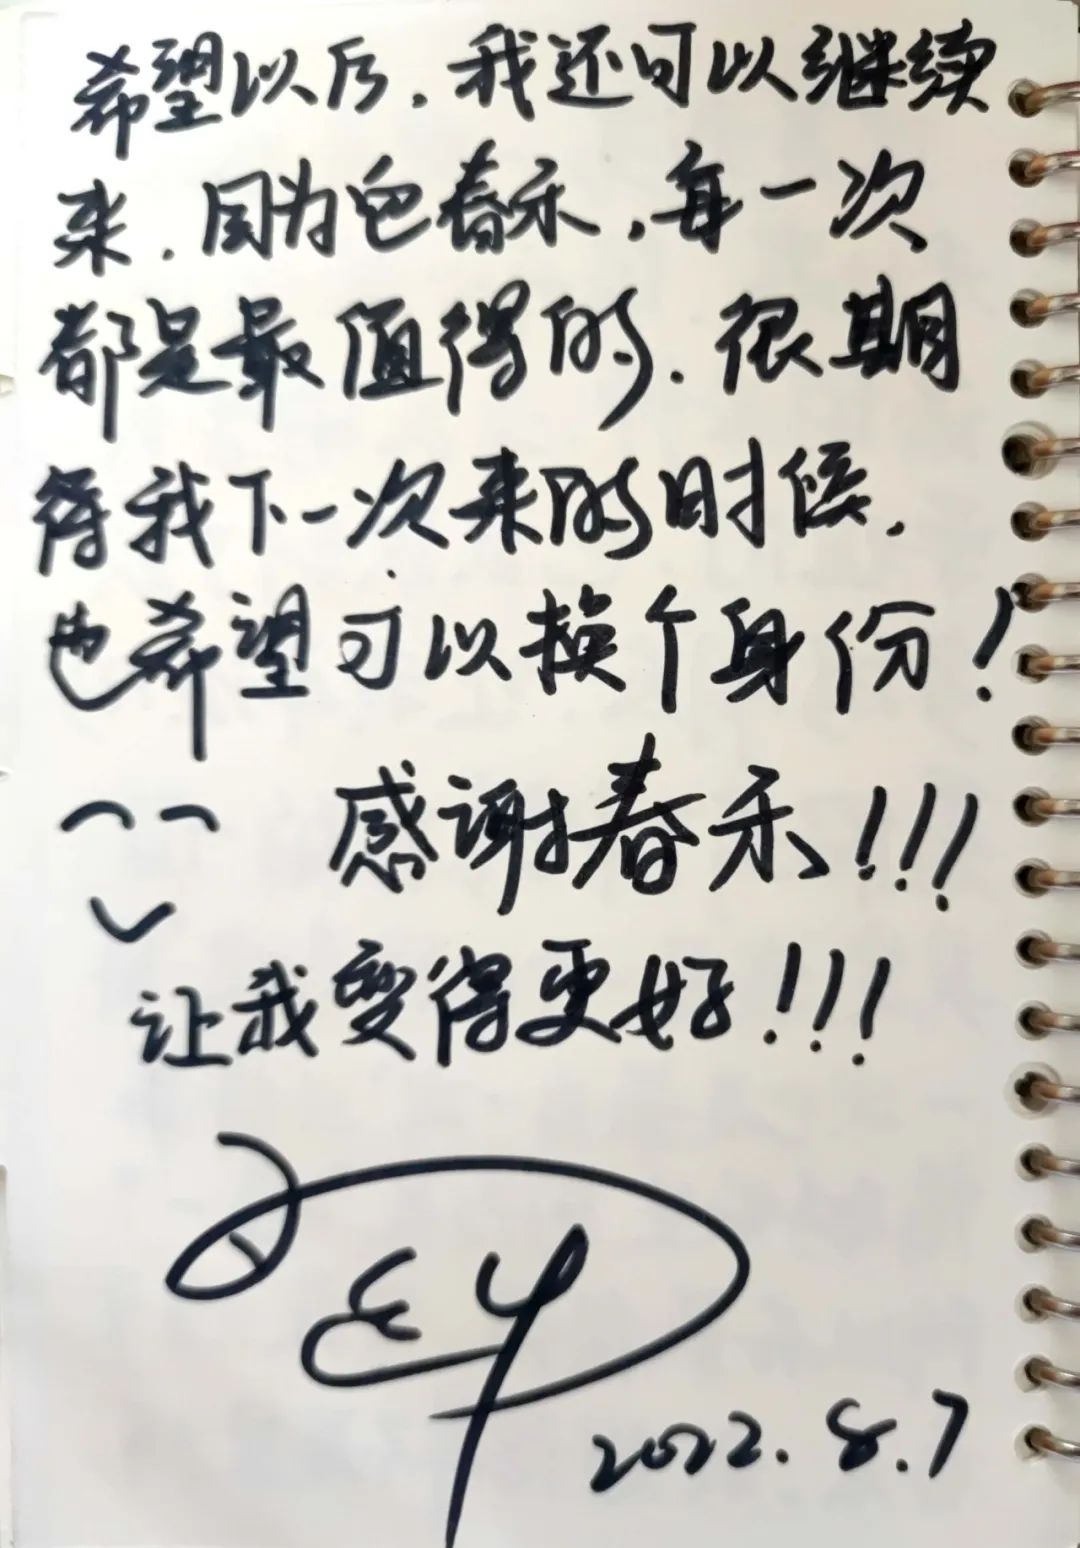 希望以后,我还可以继续
来.因为色春禾,每一次
都是最值得的.很期
待我下一次来的时候,
也希望可以换个身份!
感谢春禾!!!
让我变得更好!!!
2022.8.7